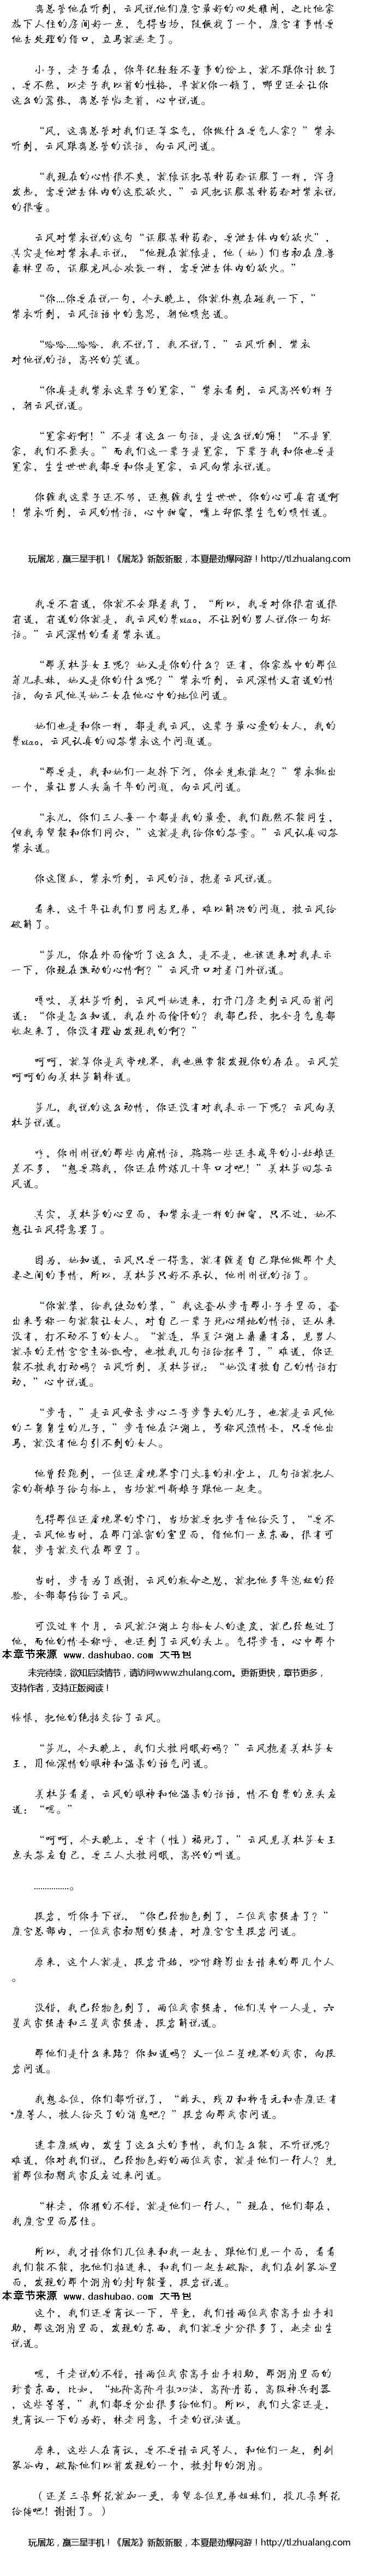 离总管他在听到，云风说他们魔宫最好的四处雅间，之比他家
落下人住的房间好一点，气得当场，随便找了一个，魔宫有事情要
他去处理的借口，立马就逃走了。
小子，老子看在，你年纪轻轻不董事的份上，就不跟你计较了
，要不然，以老子我以前的性格，早就K你一顿了，哪里还会让你
这么的嚣张，离总管临走前，心中说道。
“风，这离总管对我们还算客气，你做什么要气人家？”紫衣
听到，云风跟离总管的谈话，向云风问道。
“我现在的心情很不爽，就像误把某种药粉误服了一样，浑身
发热，需要泄去体内的这股欲火，”云风把误服某种药粉对紫衣说
的很重。
云风对紫衣说的这句“误服某种药粉，要泄去体内的欲火”，
其实是他对紫衣表示说，“他现在就像是，他（她）们当初在魔兽
森林里面，误服龙凤合欢散一样，需要泄去体内的欲火。”
“你....你要在说一句，今天晚上，你就休想在碰我一下，”
紫衣听到，云风话语中的意思，朝他嗔怒道。
“哈哈.....哈哈．我不说了．我不说了．”云风听到．紫衣
对他说的话，高兴的笑道。
“你真是我紫衣这辈子的冤家，”紫衣看到，云风高兴的样子
，朝云风说道。
“冤家好啊！”不是有这么一句话，是这么说的嘛！“不是冤
家，我们不聚头。”而我们这一辈子是冤家，下辈子我和你也要是
冤家，生生世世我都要和你是冤家，云风向紫衣说道。
你缠我这辈子还不够，还想缠我生生世世，你的心可真霸道啊
！紫衣听到，云风的情话，心中甜蜜，嘴上却假装生气的嗔怪道。
玩屠龙，赢三星手机！《屠龙》新版新服，本夏最劲爆网游！http://tl.zhualang.com
我要不霸道，你就不会跟着我了，“所以，我要对你很霸道很
霸道，霸道的你就是，我云风的紫xiao，不让别的男人说你一句坏
话。”云风深情的看着紫衣道。
“那美杜莎女王呢？她又是你的什么？还有，你家族中的那位
萧儿表妹，她又是你的什么呢？”紫衣听到，云风深情又霸道的情
话，向云风他其她二女在他心中的地位问道。
她们也是和你一样，都是我云风，这辈子最心爱的女人，我的
紫xiao，云风认真的回答紫衣这个问题道。
“那要是，我和她们一起掉下河，你会先救谁起？”紫衣抛出
一个，最让男人头痛千年的问题，向云风问道。
“衣儿，你们三人每一个都是我的最爱，我们既然不能同生，
但我希望能和你们同穴，”这就是我给你的答案。”云风认真回答
紫衣道。
你这傻瓜，紫衣听到，云风的话，抱着云风说道。
看来，这千年让我们男同志兄弟，难以解决的问题，被云风给
破解了。
“莎儿，你在外面偷听了这么久，是不是，也该进来对我表示
一下，你现在激动的心情啊？”云风开口对着门外说道。
嘎吱，美杜莎听到，云风叫她进来，打开门房走到云风面前问
道：“你是怎么知道，我在外面偷停的？我都已经，把全身气息都
收起来了，你没有理由发现我的啊？”
呵呵，就算你是武帝境界，我也照常能发现你的存在。云风笑
呵呵的向美杜莎解释道。
莎儿，我说的这么动情，你还没有对我表示一下呢？云风向美
杜莎说道。
哼，你刚刚说的那些肉麻情话，骗骗一些还未成年的小姑娘还
差不多，“想要骗我，你还在修炼几十年口才吧！”美杜莎回答云
风道。
其实，美杜莎的心里面，和紫衣是一样的甜蜜，只不过，她不
想让云风得意罢了。
因为，她知道，云风只要一得意，就有缠着自己跟他做那个夫
妻之间的事情，所以，美杜莎只好不承认，他刚刚说的话了。
“你就装，给我使劲的装，”我这套从步青那小子手里面，套
出来号称一句就能让女人，对自己一辈子死心塌地的情话，还从来
没有，打不动不了的女人。“就连，华夏江湖上鼎鼎有名，见男人
就杀的无情宫宫主冷傲雪，也被我几句话给摆平了，”难道，你还
能不被我打动吗？云风听到，美杜莎说：“她没有被自己的情话打
动，”心中说道。
“步青，”是云风母亲步心二哥步擎天的儿子，也就是云风他
的二舅舅生的儿子，”步青他在江湖上，号称风流情圣，只要他出
马，就没有他勾引不到的女人。
他曾经跑到，一位还虚境界掌门大喜的礼堂上，几句话就把人
家的新娘子给勾搭上，当场就叫新娘子跟他一起走。
气得那位还虚境界的掌门，当场就要把步青他给灭了，“要不
是，云风他当时，在那门派密的室里面，借他们一点东西，很有可
能，步青就交代在那里了。
当时，步青为了感谢，云风的救命之恩，就把他多年泡妞的经
验，全部都传给了云风。
可没过半个月，云风就江湖上勾搭女人的速度，就已经超过了
他，而他的情圣称呼，也还到了云风的头上。气得步青，心中那个
本章节来源 www.dashubao.com 大书包
未完待续，欲知后续情节，请访问www.zhulang.com。更新更快，章节更多，
支持作者，支持正版阅读！
悔恨，把他的绝招交给了云风。
“莎儿，今天晚上，我们大被同眠好吗？”云风抱着美杜莎女
王，用他深情的眼神和温柔的语气问道。
美杜莎看着，云风的眼神和他温柔的话语，情不自禁的点头应
道：“嗯。”
“呵呵，今天晚上，要幸（性）福死了，”云风见美杜莎女王
点头答应自己，要三人大被同眠，高兴的叫道。
................。
段岩，听你手下说，“你已经物色到了，二位武宗强者了？”
魔宫总部内，一位武宗初期的强者，对魔宫宫主段岩问道。
原来，这个人就是，段岩开始，吩咐魏影出去请来的那几个人
。
没错，我已经物色到了，两位武宗强者，他们其中一人是，六
星武宗强者和三星武宗强者，段岩解说道。
那他们是什么来路？你知道吗？又一位二星境界的武宗，向段
岩问道。
我想各位，你们都听说了，“昨天，残刀和柳青元和赤魔还有
*魔等人，被人给灭了的消息吧？”段岩向那武宗问道。
迷雾魔城内，发生了这么大的事情，我们怎么能，不听说呢？
难道，你对我们说，已经物色好的两位武宗，就是他们一行人？先
前那位初期武宗反应过来问道。
“林老，你猜的不错，就是他们一行人，”现在，他们都在，
我魔宫里面居住。
所以，我才请你们几位来和我一起去，跟他们见一个面，看看
我们能不能，把他们拉进来，和我们一起去破除，我们在剑冢谷里
面，发现的那个洞府的封印能量，段岩说道。
本章节来源 www.dashubao.com 大书包
这个，我们还要商议一下，毕竟，我们请两位武宗高手出手相
助，那这洞府里面，发现的东西，我们就要少分很多了，赵老出生
说道。
嗯，千老说的不错，请两位武宗高手出手相助，那洞府里面的
珍贵东西，比如，“地阶高阶斗技功法，高阶丹药，高级神兵利器
，这些等等，”我们都要分出很多给他们。所以，我们大家还是，
先商议一下的为好，林老同意，千老的说法道。
原来，这些人在商议，要不要请云风等人，和他们一起，到剑
冢谷内，破除他们以前发现的一个，被封印的洞府。
（还差三朵鲜花就加一更，希望各位兄弟姐妹们，投几朵鲜花
给俺吧！谢谢了。）
玩屠龙，赢三星手机！《屠龙》新版新服，本夏最劲爆网游！http://tl.zhualang.com